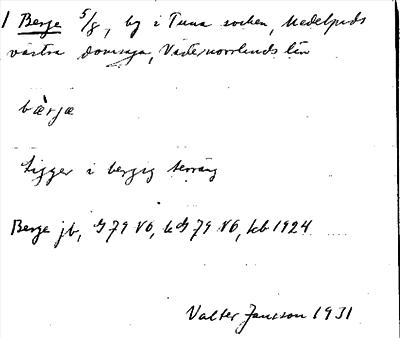 1 Berge 5/8, by i Tuna socken, Medelpads
västra domsaga, Västernorrlands län
bærjæ
Ligger i bergig terräng
Berge jb, G 79 V6, kb 1924
Valter Jansson 1931